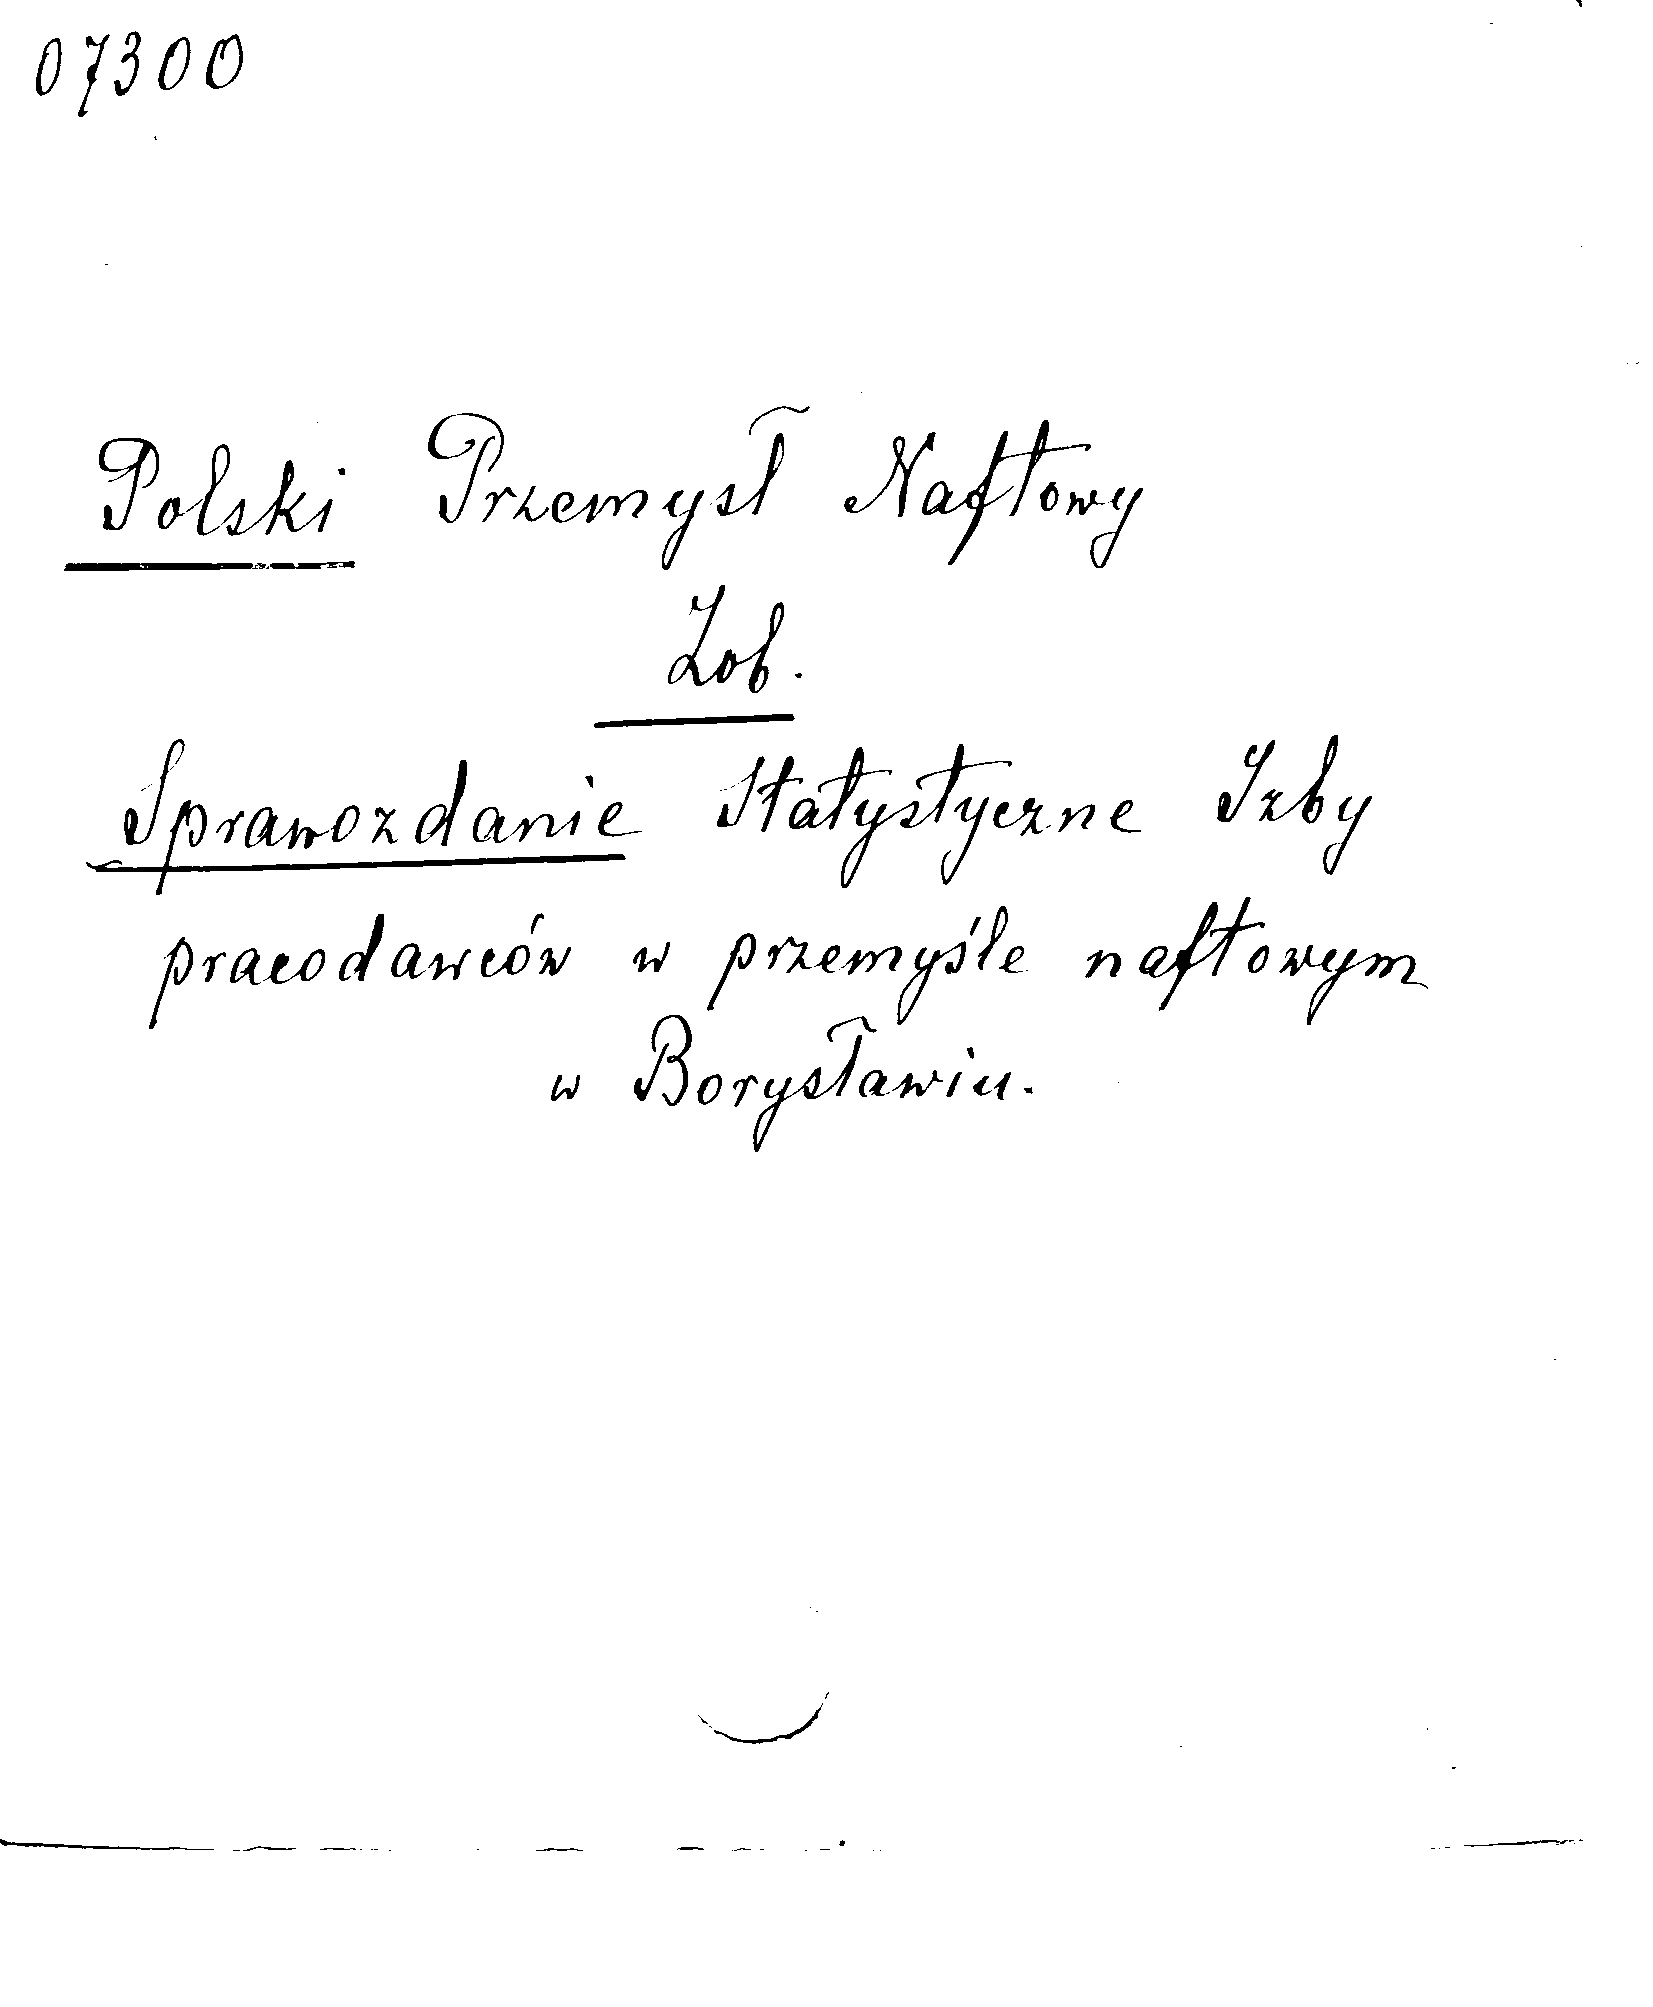 07300
Polski Przemysł Naftowy
Zob.
Sprawozdanie Statystyczne Izby
pracodawców w przemyśle naftowym
w Borysławiu.